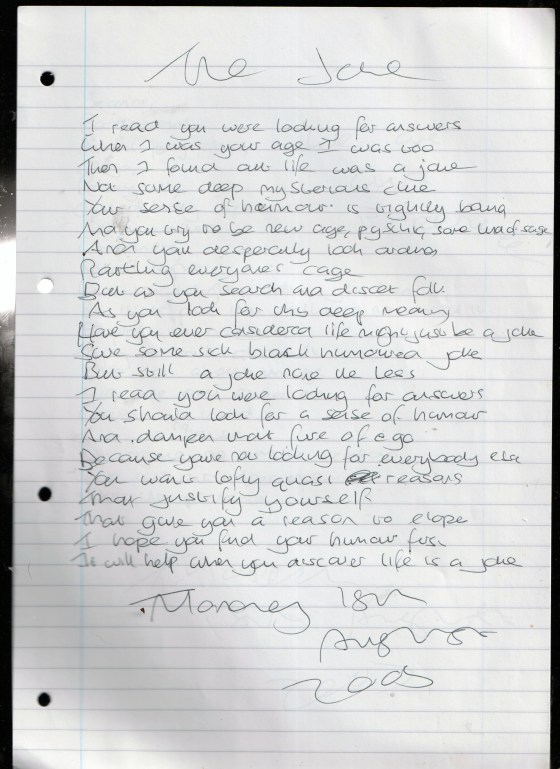 The Joke
I read you were looking for answers
When I was your age I was too
Then I found out life was a joke
Not some deep mysterious clue
Your sense of humour is vigilantly
And you try to be new age, pyschic, some kind of sage
And you desperatly look around
Rattling everyones cage
But as you search and disect folk
As you look for this deep meaning
Have you ever considered life might just be a joke
Sure some sick black humoured joke
But still a joke none the less
I read you were looking for answers
You should look for a sense of humour
And dampen that fire of ego
Because your not looking for everybody else
You want lofty quasi reasons
That justify yourself
That give you a reason to elope
I hope you find your humour first
It will help when you discover life is a joke
Monday 15th
August
2005